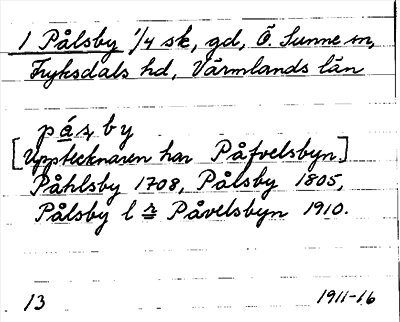 1 Pålsby 1/4 sk, gd, Ö. Sunne sn,
Fryksdals hd, Värmlands län
pá̱ʂby
[Upptecknaren har Påfvelsbyn]
Påhlsby 1708, Pålsby 1805,
Pålsby l = Påvelsbyn 1910.
13 1911-16